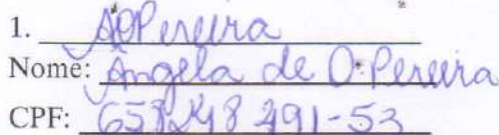 1. AOPereira
Nome: Angela de O. Pereira
CPF: 658248 491-53